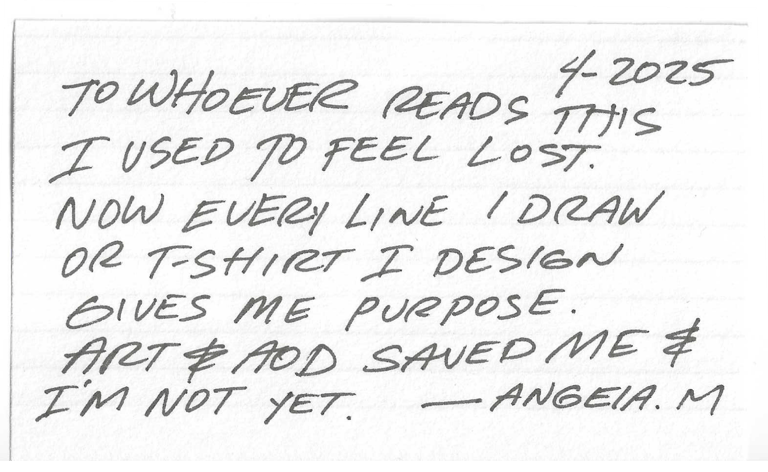 4-2025
TO WHOEVER READS THIS
I USED TO FEEL LOST.
NOW EVERY LINE I DRAW
OR T-SHIRT I DESIGN
GIVES ME PURPOSE.
ART & AOD SAVED ME &
I'M NOT YET. — ANGELA. M